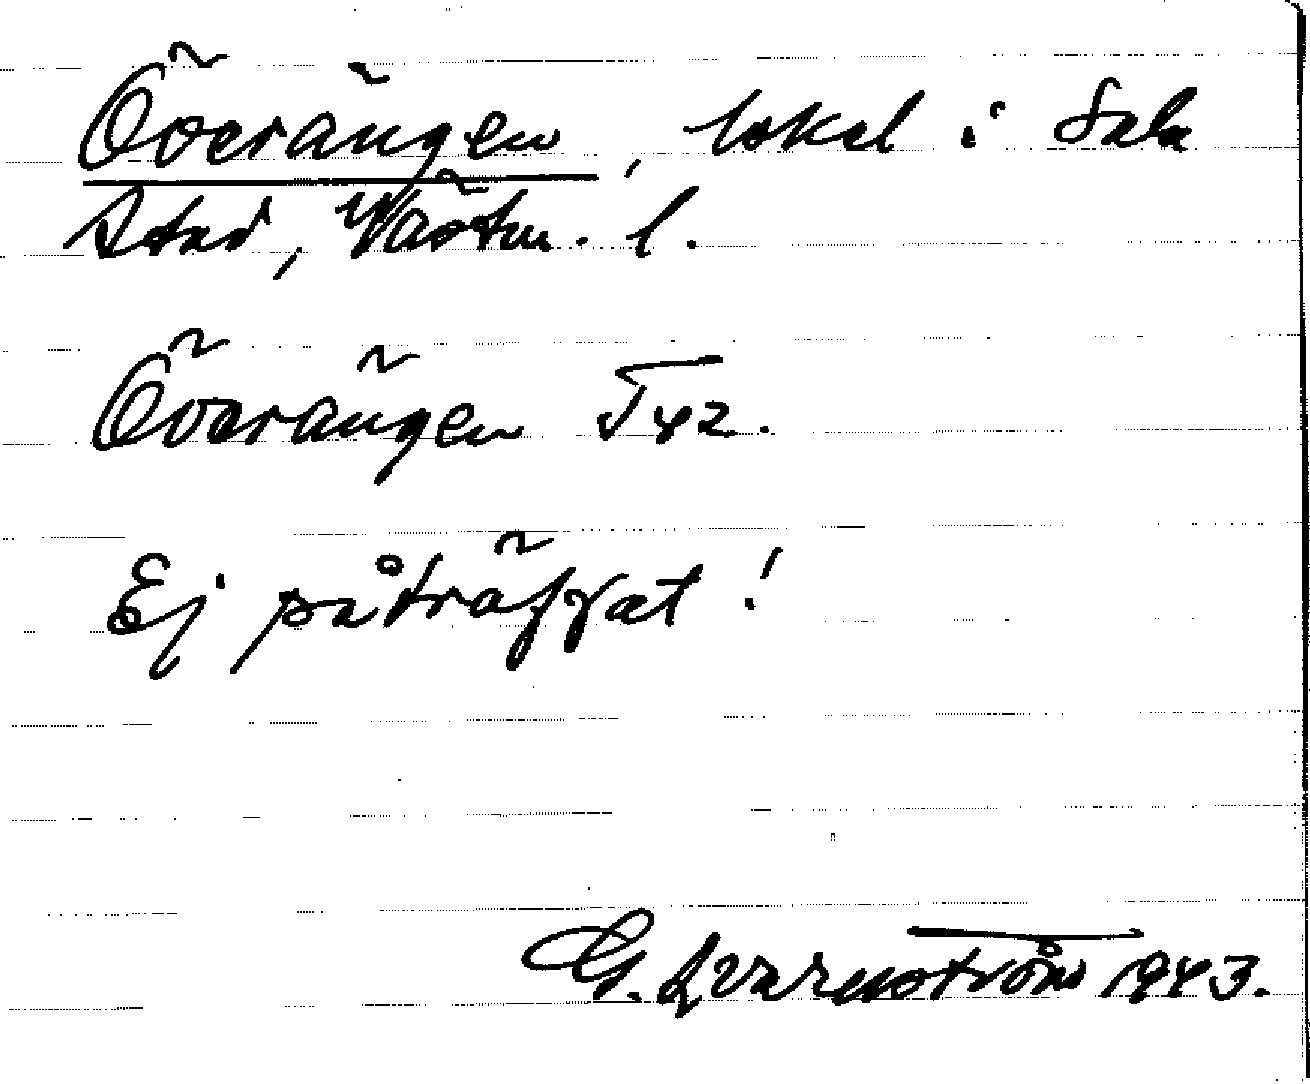 Överängen, lokal i Sala
stad, Västm. l.
Överängen T 42.
Ej påträffat!
G. Qvarnström 1943.